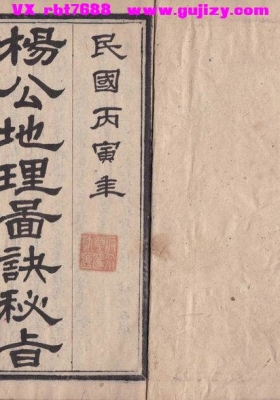 VX rht7688 www.gujizy.com
民國丙寅年
楊公地理啚訣秘旨